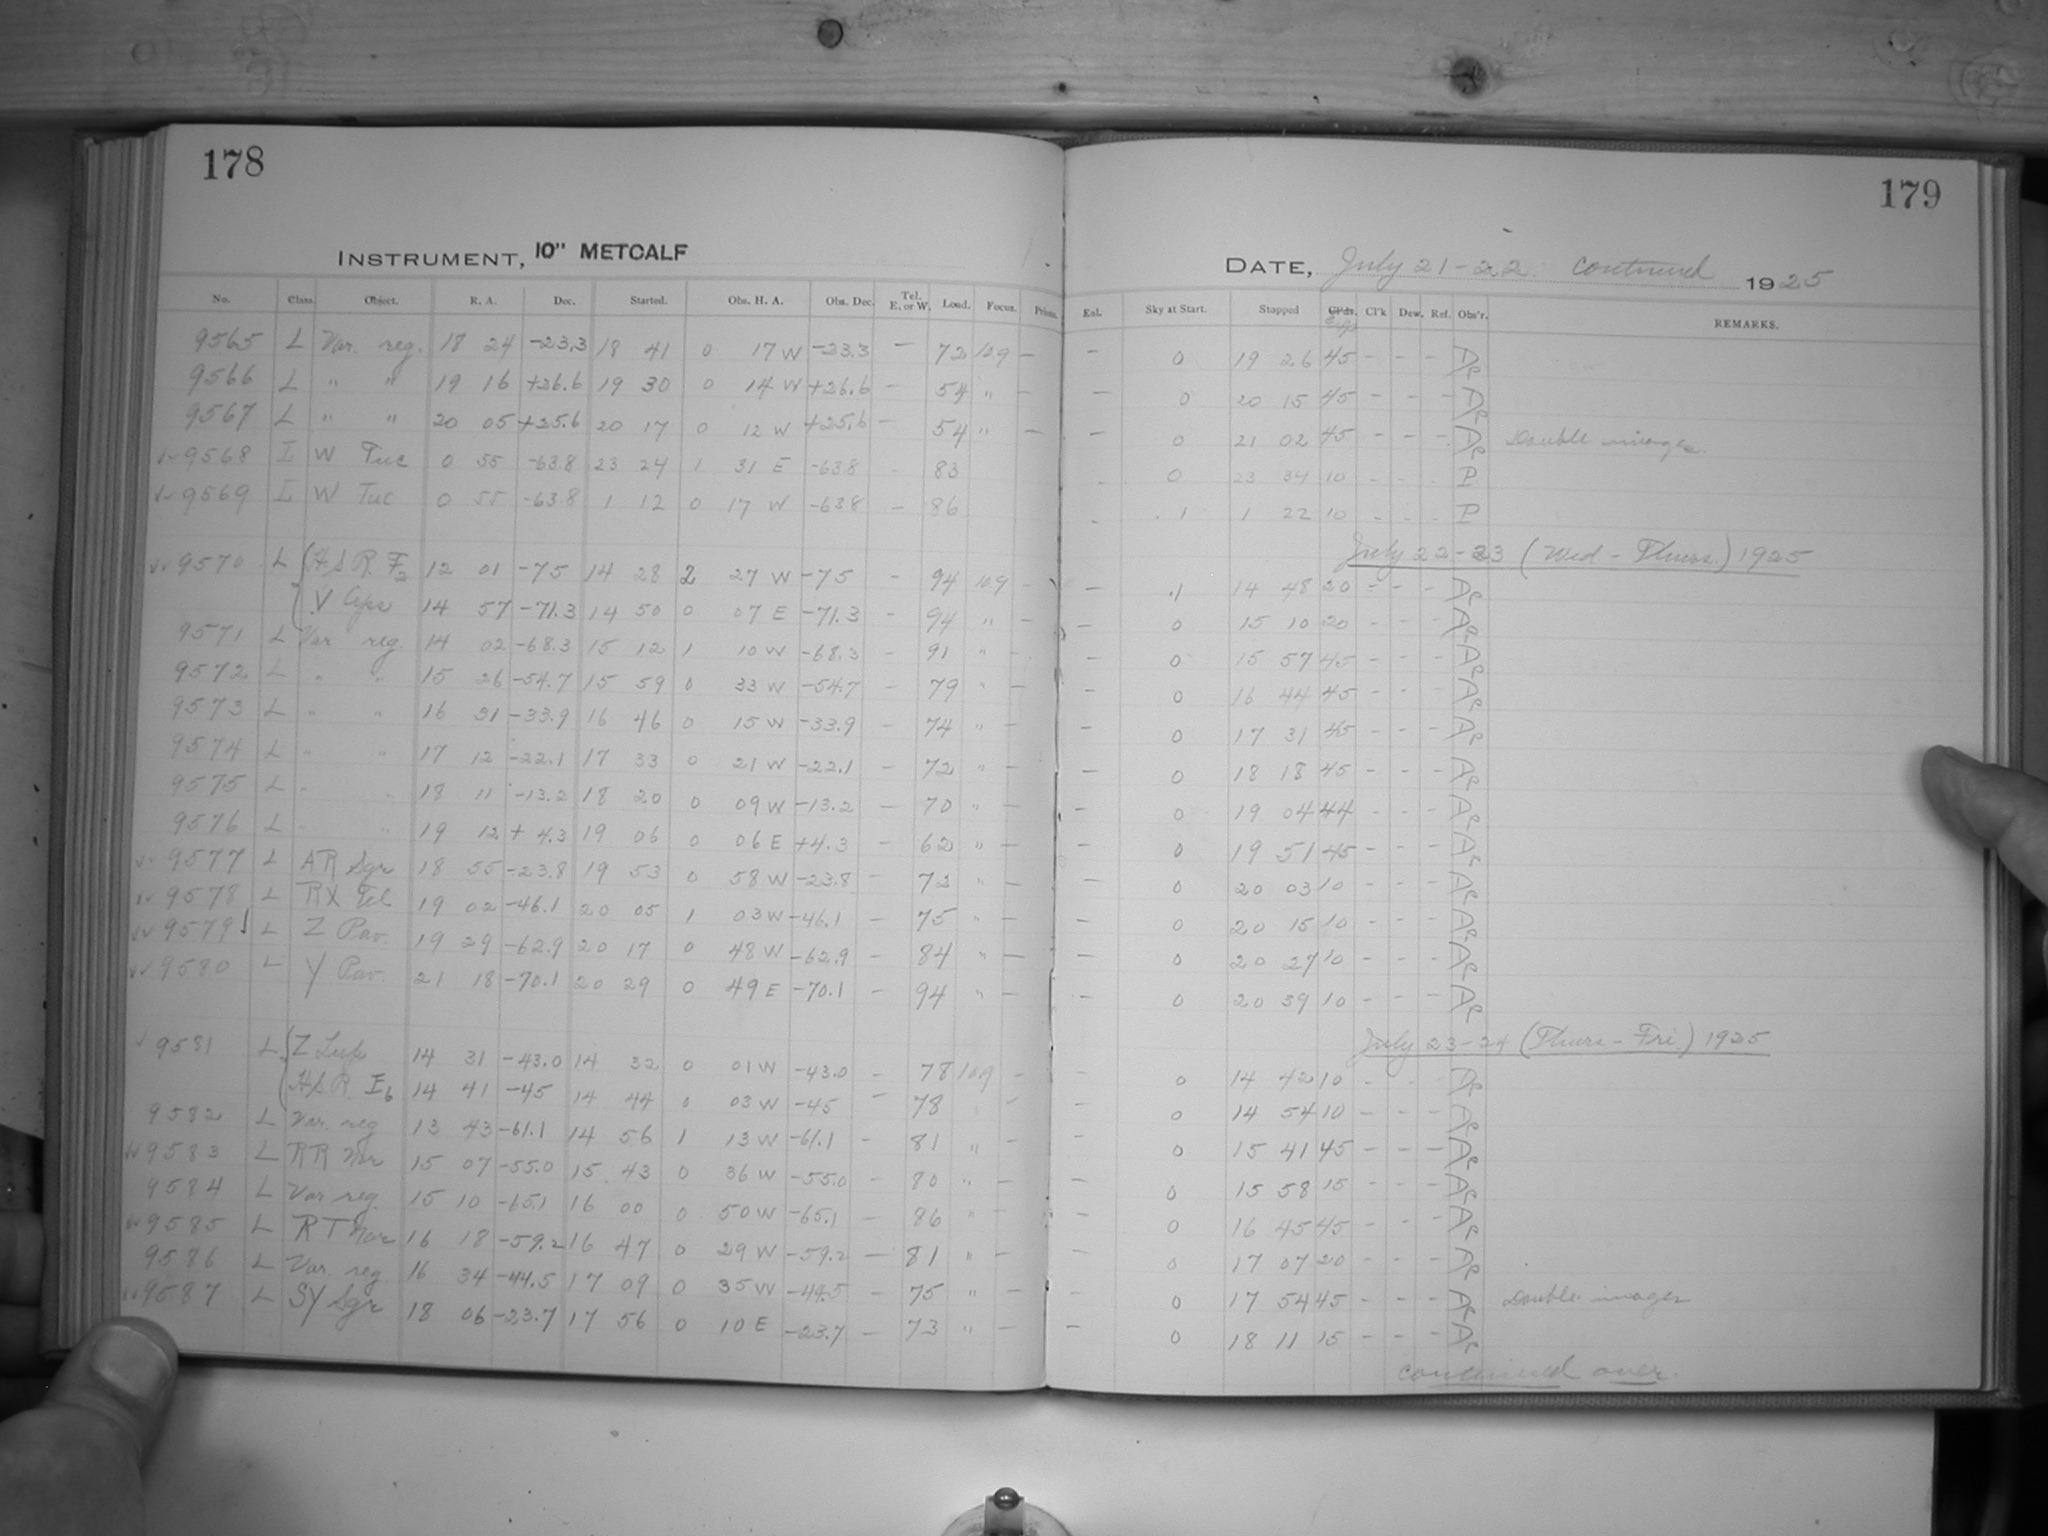 178
INSTRUMENT, 10" METCALF
No. Class. Object. R. A. Dec. Started. Obs. H. A. Obs. Dec. Tel. E. or W. Load. Focus. Prisms.
9565 L Var. reg. 18 24 -23.3 18 41 0 17 W -23.3 - 72 109 -
9566 L " " 19 16 +26.6 19 30 0 14 W +26.6 - 54 " -
9567 L " " 20 05 +25.6 20 17 0 12 W +25.6 - 54 " -
9568 I W Tuc 0 55 -63.8 23 24 1 31 E -63.8 - 83
9569 I W Tuc 0 55 -63.8 1 12 0 17 W -63.8 - 86
9570 L H S R. F2 12 01 -75 14 28 2 27 W -75 - 94 109 -
V Aps 14 57 -71.3 14 50 0 07 E -71.3 - 94 " -
9571 L Var reg. 14 02 -68.3 15 12 1 10 W -68.3 - 91 " -
9572 L " " 15 26 -54.7 15 59 0 33 W -54.7 - 79 " -
9573 L " " 16 31 -33.9 16 46 0 15 W -33.9 - 74 " -
9574 L " " 17 12 -22.1 17 33 0 21 W -22.1 - 72 " -
9575 L " " 18 11 -13.2 18 20 0 09 W -13.2 - 70 " -
9576 L " " 19 12 +4.3 19 06 0 06 E +4.3 - 62 " -
9577 L AR Sgr 18 55 -23.8 19 53 0 58 W -23.8 - 73 " -
9578 L RX Tel 19 02 -46.1 20 05 1 03 W -46.1 - 75 " -
9579 L Z Pav. 19 29 -62.9 20 17 0 48 W -62.9 - 84 " -
9580 L Y Pav. 21 18 -70.1 20 29 0 49 E -70.1 - 94 " -
9581 L Z Lup 14 31 -43.0 14 32 0 01 W -43.0 - 78 109 -
H S R I6 14 41 -45 14 44 0 03 W -45 - 78 -
9582 L Var. reg 13 43 -61.1 14 56 1 13 W -61.1 - 81 " -
9583 L RR Nor 15 07 -55.0 15 43 0 36 W -55.0 - 80 " -
9584 L Var reg. 15 10 -65.1 16 00 0 50 W -65.1 - 86 " -
9585 L RT Nor 16 18 -59.2 16 47 0 29 W -59.2 - 81 " -
9586 L Var. reg 16 34 -44.5 17 09 0 35 W -44.5 - 75 " -
9587 L SY Sgr 18 06 -23.7 17 56 0 10 E -23.7 - 73 " -
179
DATE, July 21-22 continued 1925
Enl. Sky at Start. Stopped Cl'k Dew. Ref. Obs'r. REMARKS.
- 0 19 26 45 - - -
- 0 20 15 45 - - -
- 0 21 02 45 - - - Double images.
- 0 23 34 10 - - - P
- .1 1 22 10 - - - P
July 22-23 (Wed - Thurs.) 1925
- .1 14 48 20 - - -
- 0 15 10 20 - - -
- 0 15 57 45 - - -
- 0 16 44 45 - - -
- 0 17 31 45 - - -
- 0 18 18 45 - - -
- 0 19 04 44 - - -
- 0 19 51 45 - - -
- 0 20 03 10 - - -
- 0 20 15 10 - - -
- 0 20 27 10 - - -
- 0 20 39 10 - - -
July 23-24 (Thurs - Fri) 1925
- 0 14 42 10 - - -
- 0 14 54 10 - - -
- 0 15 41 45 - - -
- 0 15 58 15 - - -
- 0 16 45 45 - - -
- 0 17 07 20 - - -
- 0 17 54 45 - - - Double images
- 0 18 11 15 - - -
continued over.